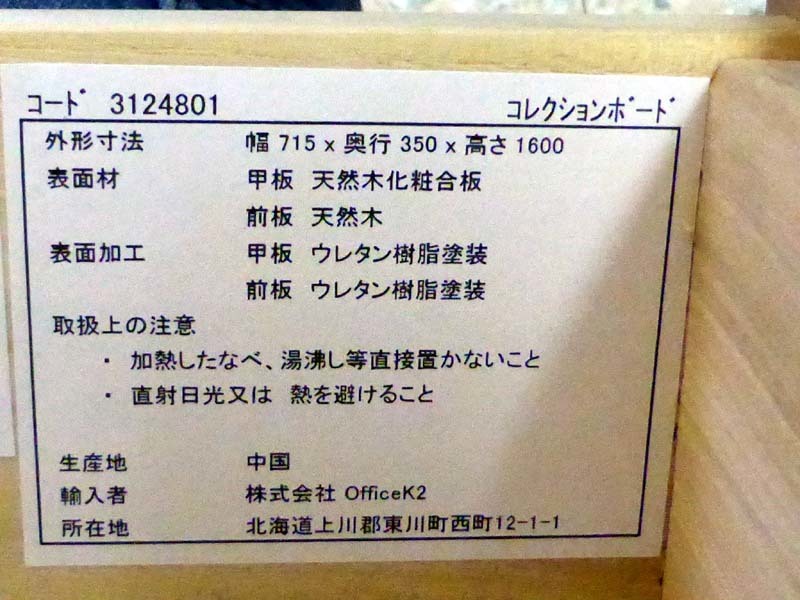 コード 3124801 コレクションボード
外形寸法 幅 715 x 奥行 350 x 高さ 1600
表面材 甲板 天然木化粧合板
前板 天然木
表面加工 甲板 ウレタン樹脂塗装
前板 ウレタン樹脂塗装
取扱上の注意
・ 加熱したなべ、湯沸し等直接置かないこと
・ 直射日光又は 熱を避けること
生産地 中国
輸入者 株式会社 OfficeK2
所在地 北海道上川郡東川町西町12-1-1